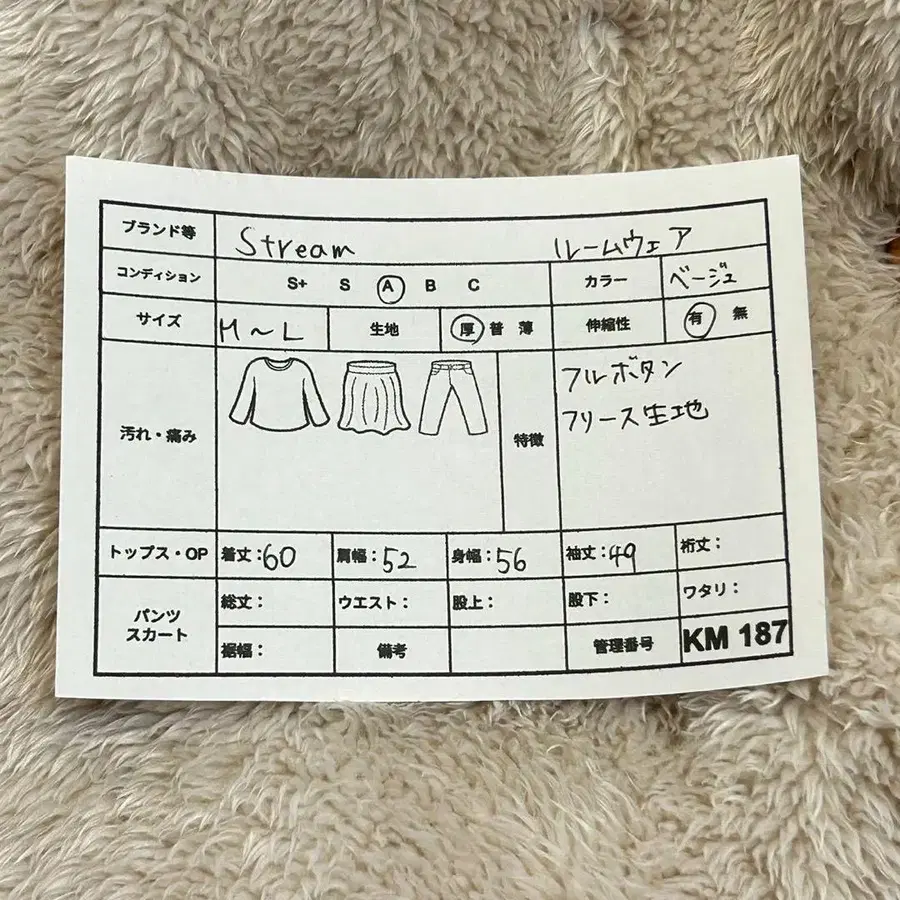 ブランド等 Stream ルームウェア
コンディション S+ S A B C カラー ベージュ
サイズ M～L 生地 厚 普 薄 伸縮性 有 無
汚れ・痛み 特徴 フルボタン
フリース生地
トップス・OP 着丈：60 肩幅：52 身幅：56 袖丈：49 裄丈：
パンツ スカート 総丈： ウエスト： 股上： 股下： ワタリ：
裾幅： 備考 管理番号 KM 187